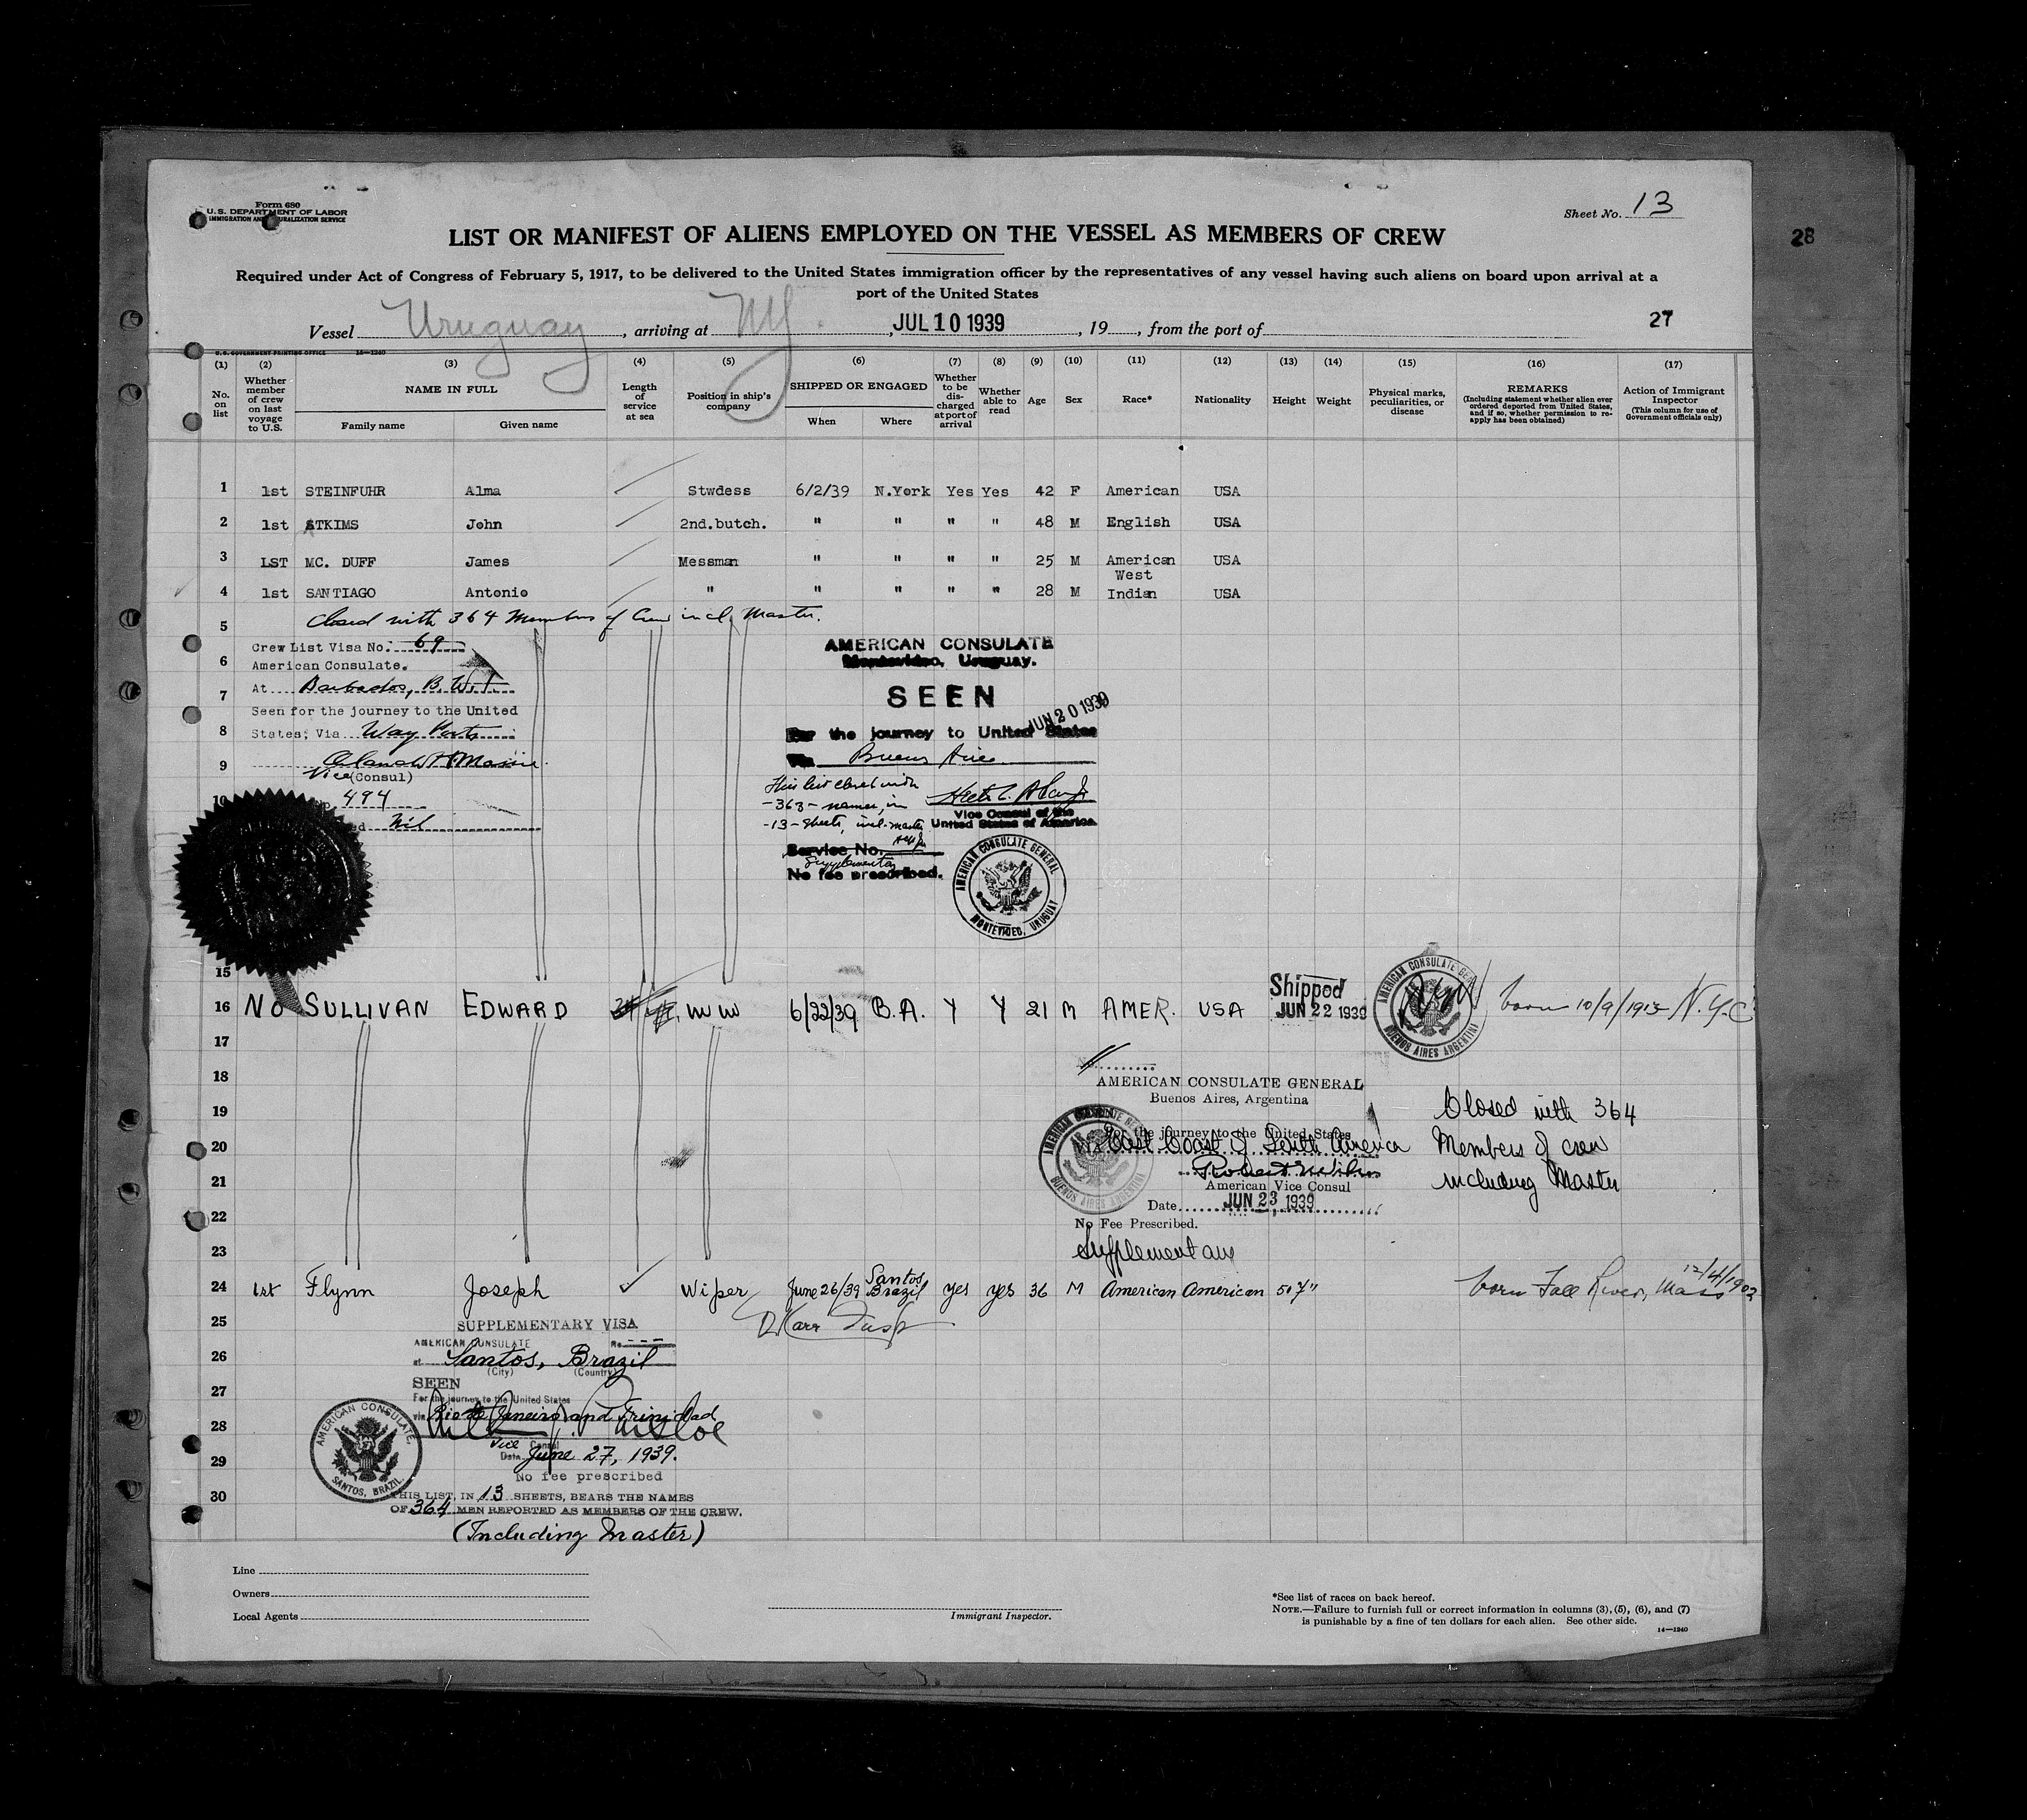 Form 680
U.S. DEPARTMENT OF LABOR
IMMIGRATION AND NATURALIZATION SERVICE
Sheet No. 13
LIST OR MANIFEST OF ALIENS EMPLOYED ON THE VESSEL AS MEMBERS OF CREW
28
Required under Act of Congress of February 5, 1917, to be delivered to the United States immigration officer by the representatives of any vessel having such aliens on board upon arrival at a
port of the United States
27
Vessel Uruguay, arriving at NY., JUL 10 1939, 19, from the port of
U.S. GOVERNMENT PRINTING OFFICE 14—1240
(1) (2) (3) (4) (5) (6) (7) (8) (9) (10) (11) (12) (13) (14) (15) (16) (17)
No. on list
Whether member of crew on last voyage to U.S.
NAME IN FULL
Family name
Given name
Length of service at sea
Position in ship's company
SHIPPED OR ENGAGED
When
Where
Whether to be discharged at port of arrival
Whether able to read
Age
Sex
Race*
Nationality
Height
Weight
Physical marks, peculiarities, or disease
REMARKS
(Including statement whether alien ever ordered deported from United States, and if so, whether permission to reapply has been obtained)
Action of Immigrant Inspector
(This column for use of Government officials only)
1 1st STEINFUHR Alma Stwdess 6/2/39 N.York Yes Yes 42 F American USA
2 1st ATKIMS John 2nd.butch. " " " " 48 M English USA
3 LST MC. DUFF James Messman " " " " 25 M American USA
4 1st SANTIAGO Antonio " " " " " 28 M West Indian USA
5 Closed with 364 Members of Crew incl. Master.
6
7
8
9
10
Crew List Visa No. 69
American Consulate.
At Barbados, B.W.I.
Seen for the journey to the United
States; Via Way Ports
Vice (Consul)
494
Nil
AMERICAN CONSULATE
Montevideo, Uruguay.
SEEN
JUN 20 1939
For the journey to United States
Via Buenos Aires
This list closed with
-363- names, in
-13- sheets, incl. master
Vice Consul of the
United States of America.
Service No.
Supplementary
No fee prescribed.
AMERICAN CONSULATE GENERAL
MONTEVIDEO, URUGUAY
15
16 No SULLIVAN EDWARD WW 6/22/39 B.A. Y Y 21 M AMER. USA
Shipped
JUN 22 1939
AMERICAN CONSULATE GENERAL
BUENOS AIRES ARGENTINA
born 10/9/1917 N.Y.C
17
18
19
20
21
22
23
AMERICAN CONSULATE GENERAL
Buenos Aires, Argentina
For the journey to the United States
via East Coast of South America
American Vice Consul
Date JUN 23 1939
No Fee Prescribed.
Supplementary
BUENOS AIRES ARGENTINA
Closed with 364
Members of crew
including Master
24 1st Flynn Joseph Wiper June 26/39 Santos Brazil yes yes 36 M American American 5 07" born Fall River, Mass 12/4/1902
25
26
27
28
29
30
SUPPLEMENTARY VISA
AMERICAN CONSULATE No ---
at Santos, Brazil
(City) (Country)
SEEN
For the journey to the United States
via Rio de Janeiro and Trinidad
Vice Consul
Date June 27, 1939.
No fee prescribed
AMERICAN CONSULATE,
SANTOS, BRAZIL.
THIS LIST, IN 13 SHEETS, BEARS THE NAMES
OF 364 MEN REPORTED AS MEMBERS OF THE CREW.
(Including Master)
Line
Owners
Local Agents
Immigrant Inspector.
*See list of races on back hereof.
NOTE.—Failure to furnish full or correct information in columns (3), (5), (6), and (7)
is punishable by a fine of ten dollars for each alien. See other side.
14—1240